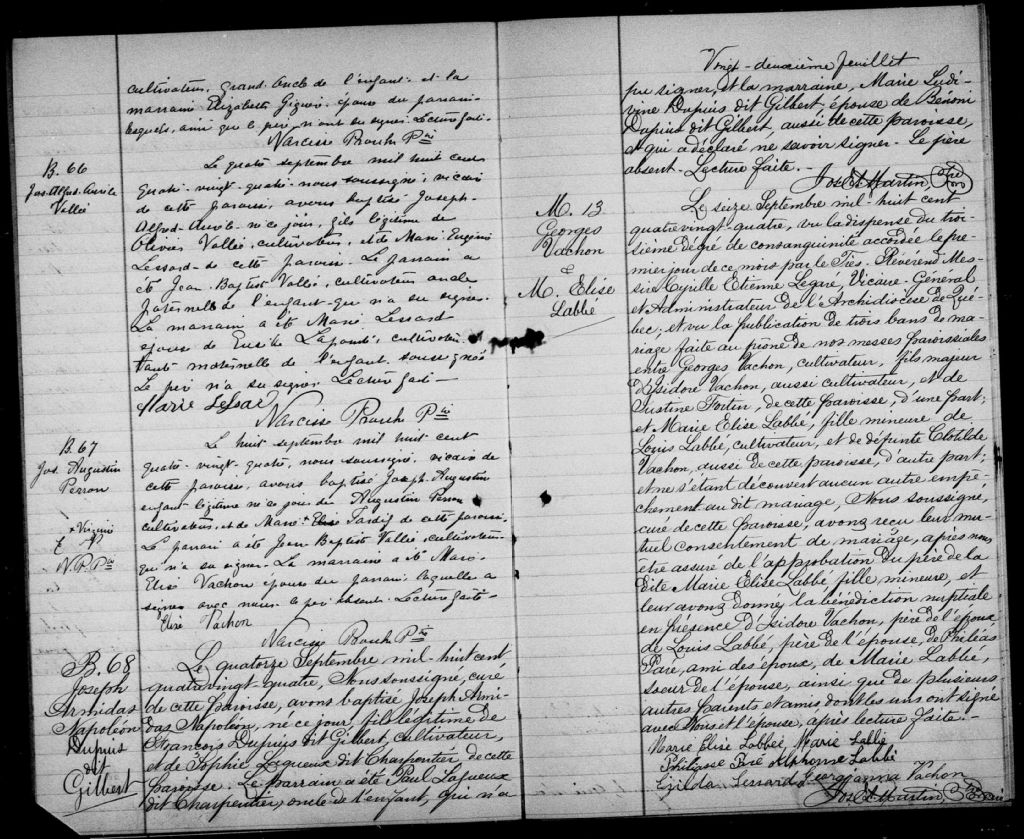 cultivateur, grand oncle de l'enfant et la
marraine Elizabeth Giguère, épouse du parrain
lesquels, ainsi que le père n'ont su signer. Lecture faite.
Narcisse Proulx Ptre
B. 66
Jos. Alfred. Aurèle
Vallée
Le quatre septembre mil huit cent
quatre-vingt-quatre nous soussigné, vicaire
de cette paroisse, avons baptisé Joseph-
Alfred-Aurèle né ce jour, fils légitime de
Olivier Vallée, cultivateur, et de Marie Eugénie
Lessard de cette paroisse. Le parrain a
été Jean-Baptiste Vallée, cultivateur oncle
paternelle de l'enfant qui n'a su signer.
La marraine a été Marie Lessard
épouse de Eusèbe, cultivateur
tante maternelle de l'enfant soussignée
Le père n'a su signer Lecture faite
Marie Lessard
Narcisse Proulx Ptre
B. 67
Jos. Augustin
Perron
Le huit septembre mil huit cent
quatre-vingt-quatre, nous soussigné, vicaire de
cette paroisse, avons baptisé Joseph Augustin
enfant légitime né ce jour de Augustin Perron
cultivateur, et de Marie + Elise Tardif de cette paroisse.
Le parrain a été Jean Baptiste Vallée, cultivateur
qui n'a su signer. La marraine a été Marie
Elise Vachon épouse du parrain laquelle a
signé avec nous le père absent. Lecture faite
+ Virginie
N. P. Ptre
Elise Vachon
Narcisse Proulx Ptre
B. 68
Joseph
Armidas
Napoléon
Dupuis
dit
Gilbert
Le quatorze Septembre mil-huit cent
quatrevingt-quatre, Nous soussigné, curé
de cette paroisse, avons baptisé Joseph Armi-
das Napoléon, né ce jour, fils légitime de
François Dupuis dit Gilbert, cultivateur,
et de Sophie Laqueux dit Charpentier, de cette
paroisse. Le parrain a été Paul Laqueux
dit Charpentier, oncle de l'enfant, qui n'a
Vingt-deuxième feuillet
pu signer, et la marraine, Marie Ludi-
vine Dupuis dit Gilbert, épouse de Bénoni
Dupuis dit Gilbert, aussi de cette paroisse,
et qui a déclaré ne savoir signer. Le père
absent. Lecture faite.
Jos. E. Martin, Ptre
M. 13
Georges
Vachon
&
M. Elise
Labbé
Le seize Septembre mil huit cent
quatrevingt-quatre, vu la dispense du troi-
sième dégré de consanguinité accordée le pre-
mier jour de ce mois par le Très-Révérend Mes-
sire Cyrille Etienne Légaré, Vicaire-Général
et Administrateur de l'Archidiocèse de Qué-
bec; et vu la publication de trois bans de ma-
riage faite au prône de nos messes paroissiales
entre Georges Vachon, cultivateur, fils majeur
d'Isidore Vachon, aussi cultivateur, et de
Justine Fortin, de cette paroisse, d'une part;
et Marie Elise Labbé, fille mineure de
Louis Labbé, cultivateur, et de défunte Clotilde
Vachon, aussi de cette paroisse, d'autre part;
et ne s'étant découvert aucun autre empê-
chement au dit mariage, Nous soussigné,
curé de cette paroisse, avons reçu leur mu-
tuel consentement de mariage, après nous
être assuré de l'approbation du père de la
dite Marie Elise Labbé fille mineure, et
leur avons donné la bénédiction nuptiale
en présence d'Isidore Vachon, père de l'époux,
de Louis Labbé, père de l'épouse, de Philéas
Paré, ami des époux, de Marie Labbé,
soeur de l'épouse, ainsi que de plusieurs
autres parents et amis, dont les uns ont signé
avec Nous et l'épouse, après lecture faite.
Marie Elise Labbée, Marie Labbé
Paré Alphonse Labbé
Exilda Lessard Georgianna Vachon
Jos. E. Martin, Ptre